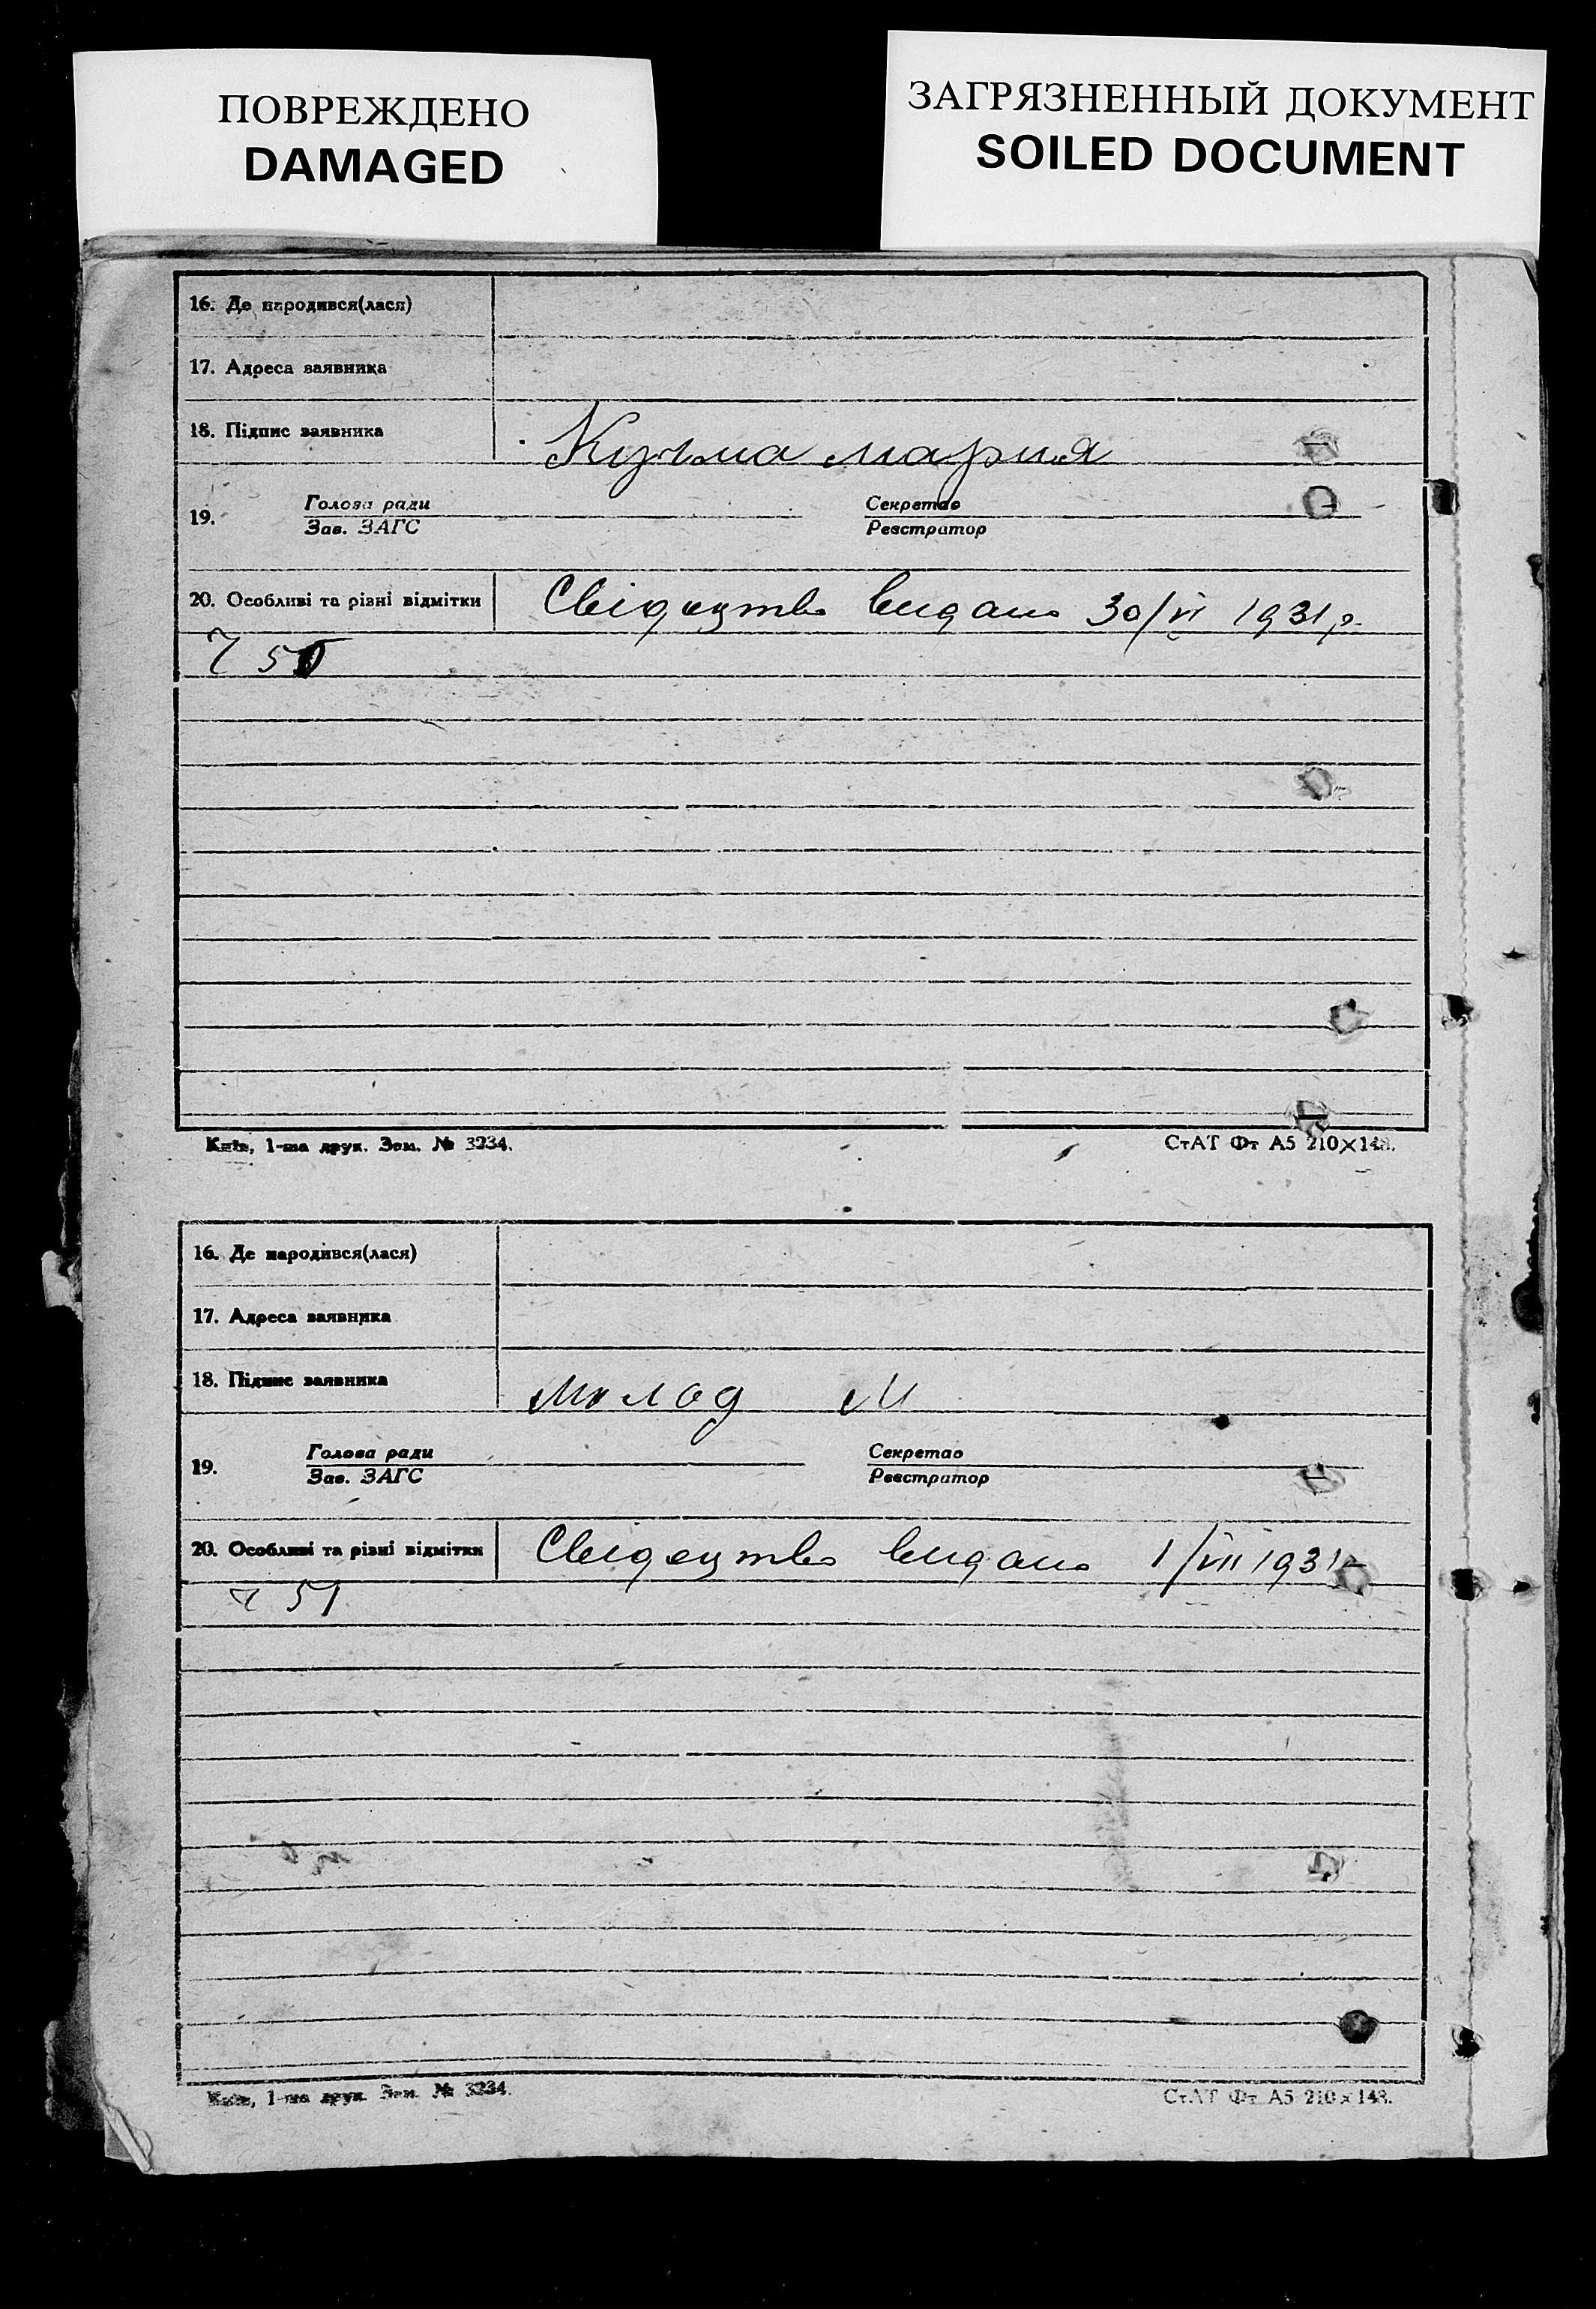 ПОВРЕЖДЕНО
DAMAGED
ЗАГРЯЗНЕННЫЙ ДОКУМЕНТ
SOILED DOCUMENT
16. Де народився(лася)
17. Адреса заявника
18. Підпис заявника Кузьма мария
19. Голова ради Секретар
Зав. ЗАГС Реєстратор
20. Особливі та різні відмітки Свідоцтво видано 30/VI 1931 р.
Ч 50
Київ, 1-ша друк. Зам. № 3234. СтАТ Фт А5 210×148.
16. Де народився(лася)
17. Адреса заявника
18. Підпис заявника Молод М
19. Голова ради Секретар
Зав. ЗАГС Реєстратор
20. Особливі та різні відмітки Свідоцтво видано 1/VII 1931
Ч 51
Київ, 1-ша друк. Зам. № 3234. СтАТ Фт А5 210×148.